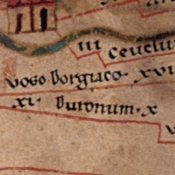 III Ceuelu
voso borgiaco. XVI
XI. Duronum. X